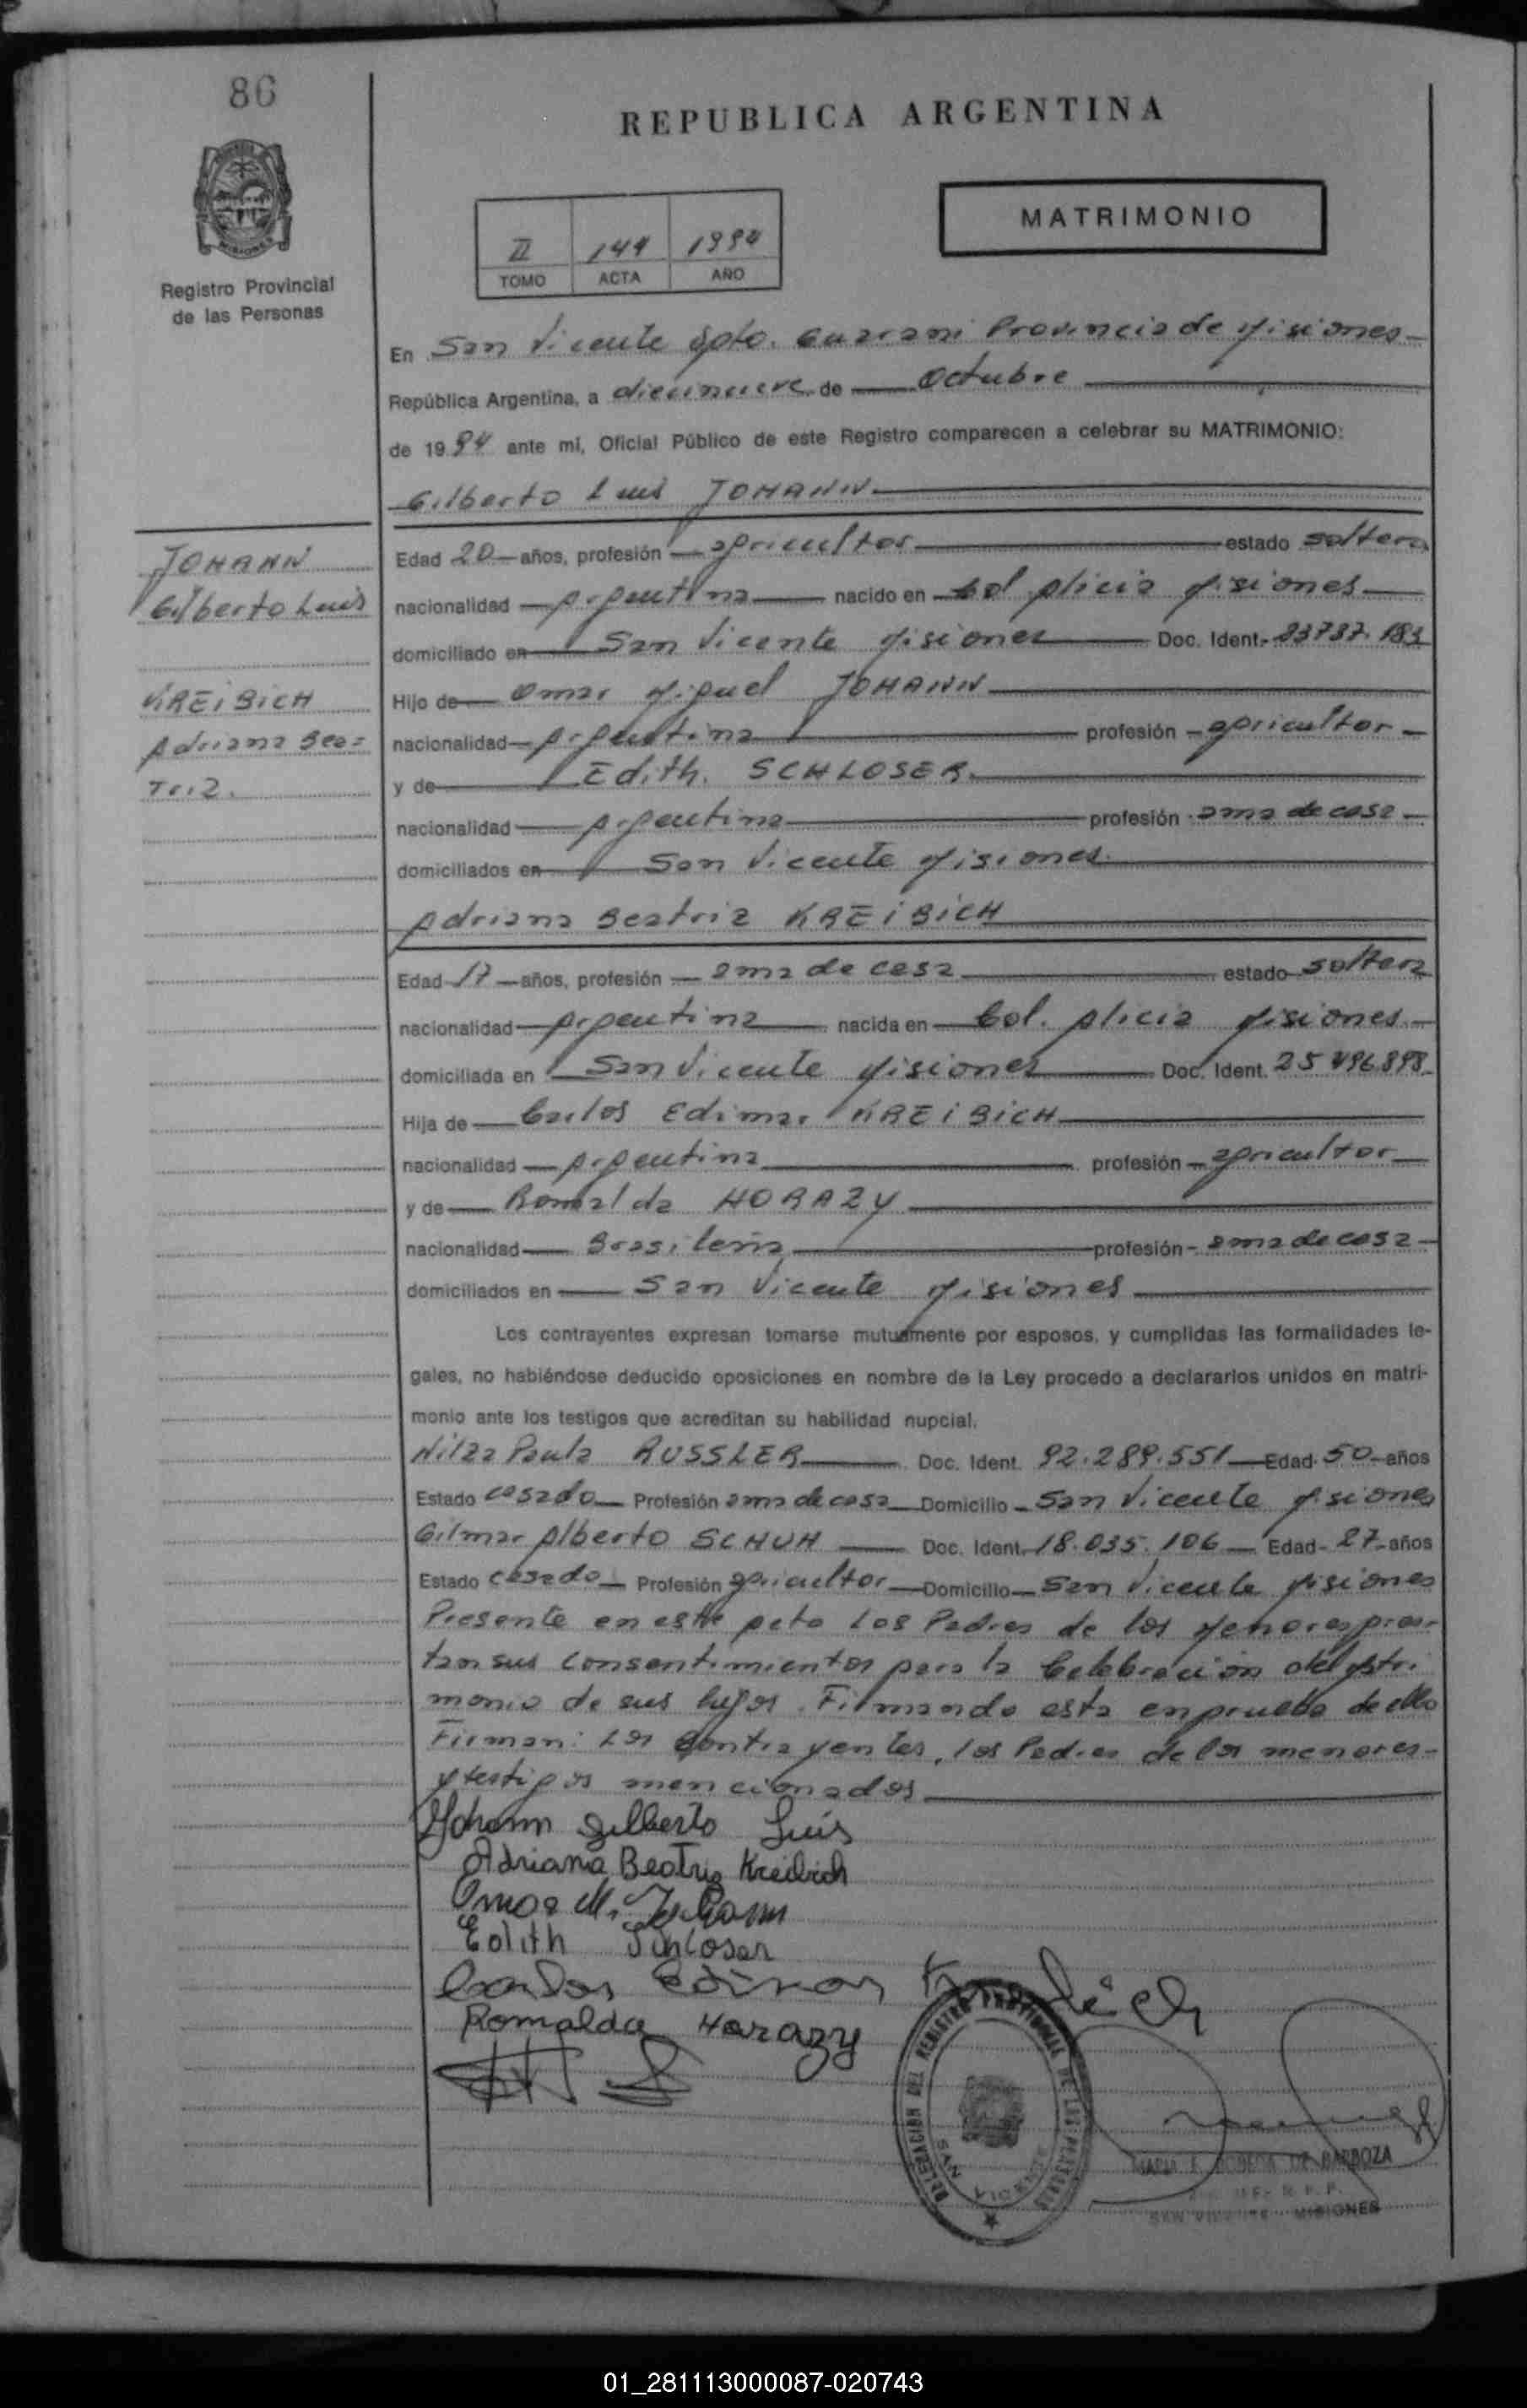 86
REPUBLICA ARGENTINA
MISIONES
Registro Provincial
de las Personas
II 144 1994
TOMO ACTA AÑO
MATRIMONIO
En San Vicente Dpto. Guarani Provincia de Misiones
República Argentina, a diecinueve de Octubre
de 1994 ante mí, Oficial Público de este Registro comparecen a celebrar su MATRIMONIO:
Gilberto Luis JOHANN
JOHANN
Gilberto Luis
KREIBICH
Adriana Bea=
triz.
Edad 20 años, profesión agricultor estado soltero
nacionalidad Argentina nacido en Col. Alicia Misiones
domiciliado en San Vicente Misiones Doc. Ident. 23737.183
Hijo de Omar Miguel JOHANN
nacionalidad Argentina profesión agricultor
y de Edith. SCHLOSER
nacionalidad Argentina profesión ama de casa
domiciliados en San Vicente Misiones
Adriana Beatriz KREIBICH
Edad 17 años, profesión ama de casa estado soltera
nacionalidad Argentina nacida en Col. Alicia Misiones
domiciliada en San Vicente Misiones Doc. Ident. 25 496.898
Hija de Carlos Edimar KREIBICH
nacionalidad Argentina profesión agricultor
y de Romalda HORAZY
nacionalidad Brasileña profesión ama de casa
domiciliados en San Vicente Misiones
Los contrayentes expresan tomarse mutuamente por esposos, y cumplidas las formalidades le-
gales, no habiéndose deducido oposiciones en nombre de la Ley procedo a declararlos unidos en matri-
monio ante los testigos que acreditan su habilidad nupcial.
Nilza Paula RUSSLER Doc. Ident. 92.289.551 Edad 50 años
Estado casado Profesión ama de casa Domicilio San Vicente Misiones
Gilmar Alberto SCHUH Doc. Ident. 18.035.106 Edad 27 años
Estado casado Profesión agricultor Domicilio San Vicente Misiones
Presente en este Acto los Padres de los Menores pres-
tan sus consentimientos para la Celebración del Matri
monio de sus hijos. Firmando esta en prueba de ello
Firman: Los Contrayentes, los Padres de los menores
y testigos mencionados
Johann Gilberto Luís
Adriana Beatriz Kreibich
Omar M. Johann
Edith Schloser
Carlos Edimar Kreibich
Romalda Horazy
DELEGACION DEL REGISTRO PROVINCIAL DE LAS PERSONAS
SAN VICENTE
MARIA DE BARBOZA
R. P. P.
SAN VICENTE MISIONES
01_281113000087-020743